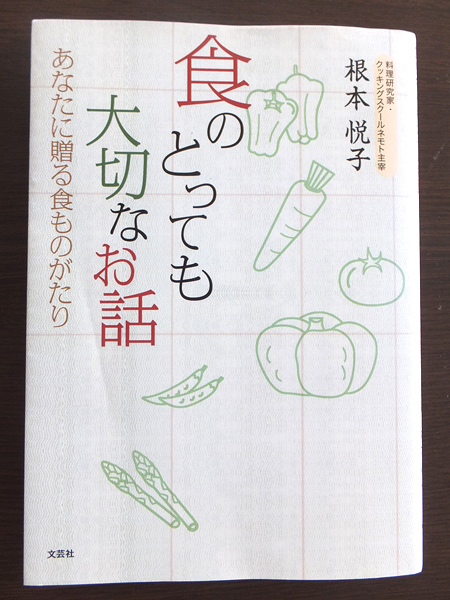 料理研究家・
クッキングスクールネモト主宰
根本 悦子
食の
とっても
大切な
お話
あなたに贈る食ものがたり
文芸社